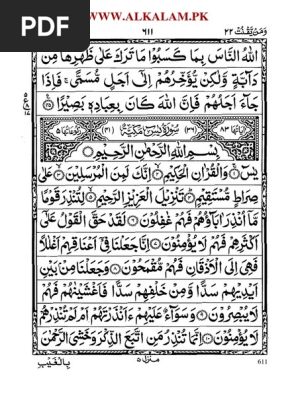 PDF
www.ALKALAM.PK
وَمَنْ يَّقْنُتْ ٢٢
٦١١
اللّٰهُ النَّاسَ بِمَا كَسَبُوْا مَا تَرَكَ عَلٰى ظَهْرِهَا مِنْ
دَآبَّةٍ وَّلٰكِنْ يُّؤَخِّرُهُمْ اِلٰٓى اَجَلٍ مُّسَمًّى ۚ فَاِذَا
جَآءَ اَجَلُهُمْ فَاِنَّ اللّٰهَ كَانَ بِعِبَادِهٖ بَصِيْرًا ﴿٤٥﴾
اٰيَاتُهَا ٨٣ (٣٦) سُوْرَةُ يٰسٓ مَكِّيَّةٌ (٤١) رُكُوْعَاتُهَا ٥
بِسْمِ اللّٰهِ الرَّحْمٰنِ الرَّحِيْمِ
يٰسٓ ۚ وَالْقُرْاٰنِ الْحَكِيْمِ ۙ اِنَّكَ لَمِنَ الْمُرْسَلِيْنَ ۙ عَلٰى
صِرَاطٍ مُّسْتَقِيْمٍ ؕ تَنْزِيْلَ الْعَزِيْزِ الرَّحِيْمِ ۙ لِتُنْذِرَ قَوْمًا
مَّآ اُنْذِرَ اٰبَآؤُهُمْ فَهُمْ غٰفِلُوْنَ لَقَدْ حَقَّ الْقَوْلُ عَلٰٓى
اَكْثَرِهِمْ فَهُمْ لَا يُؤْمِنُوْنَ اِنَّا جَعَلْنَا فِيْٓ اَعْنَاقِهِمْ اَغْلٰلًا
فَهِيَ اِلَى الْاَذْقَانِ فَهُمْ مُّقْمَحُوْنَ وَجَعَلْنَا مِنْۢ بَيْنِ
اَيْدِيْهِمْ سَدًّا وَّمِنْ خَلْفِهِمْ سَدًّا فَاَغْشَيْنٰهُمْ فَهُمْ
لَا يُبْصِرُوْنَ وَسَوَآءٌ عَلَيْهِمْ ءَاَنْذَرْتَهُمْ اَمْ لَمْ تُنْذِرْهُمْ
لَا يُؤْمِنُوْنَ اِنَّمَا تُنْذِرُ مَنِ اتَّبَعَ الذِّكْرَ وَخَشِيَ الرَّحْمٰنَ
بِالْغَيْبِ
منزل ٥
611